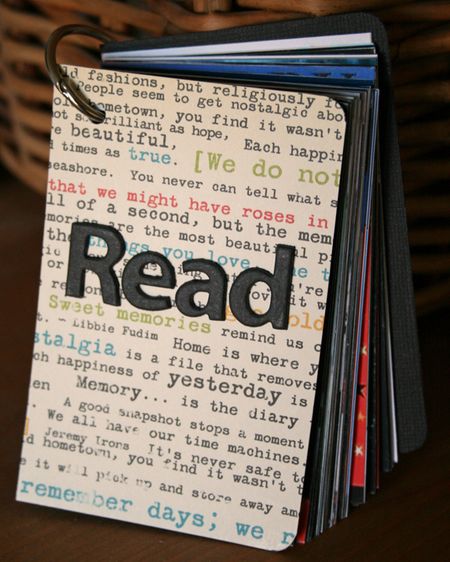 ld fashions, but religiously fo
People seem to get nostalgic abou
hometown, you find it wasn't
not as brilliant as hope, Each happin
re beautiful,
d times as true. [We do not
seashore. You never can tell what s
that we might have roses in
ll of a second, but the mem
mories are the most beautiful pi
the things you love the t
Read
Sweet memories remind us o
~ Libbie Fudim / Home is where y
stalgia is a file that removes
ch happiness of yesterday is
en Memory... is the diary
A good snapshot stops a moment
We all have our time machines.
Jeremy Irons It's never safe to
d hometown, you find it wasn't t
e it will pick up and store away am
remember days; we r